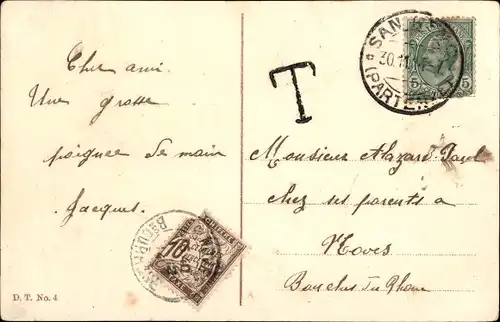 Cher ami.
Une grosse
poignée de main
Jacques.
T
SAN
30.11.
(PARTE
5
5
10
D. T. No. 4
Monsieur Mazard Paul
chez ses parents à
Noves
Bouches du Rhône